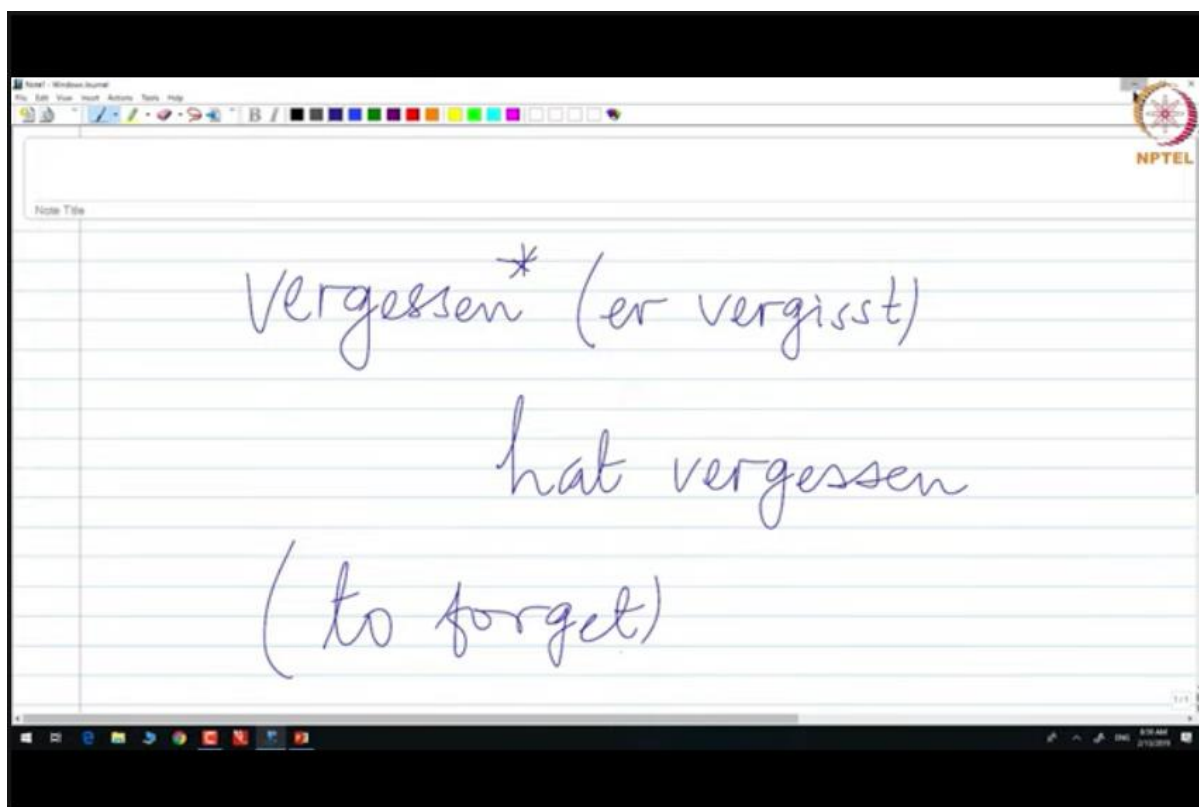 Note1 - Windows Journal
File Edit View Insert Actions Tools Help
B I
NPTEL
Note Title
vergessen* (er vergisst)
hat vergessen
(to forget)
1/1
ENG
2/13/2019